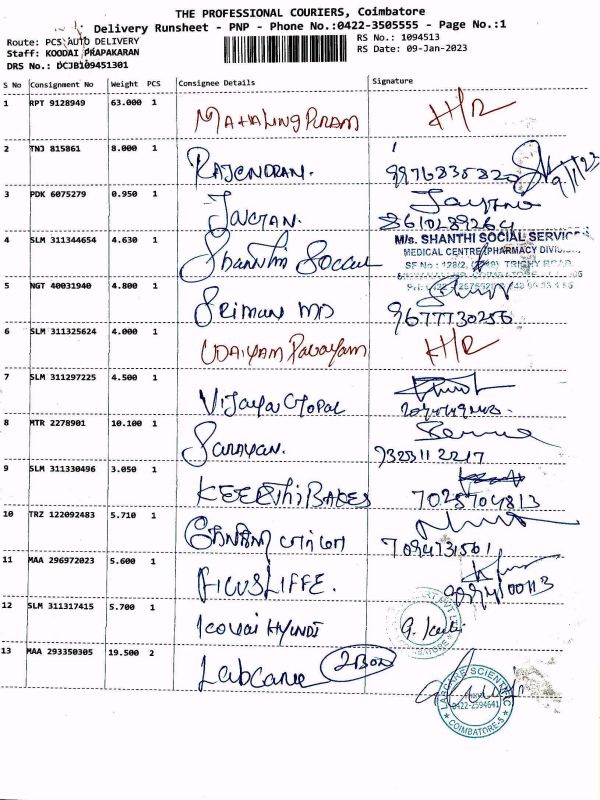 THE PROFESSIONAL COURIERS, Coimbatore
Delivery Runsheet - PNP - Phone No.:0422-3505555 - Page No.:1
Route: PCS AUTO DELIVERY
RS No.: 1094513
Staff: KOODAI PRAPAKARAN
RS Date: 09-Jan-2023
DRS No.: DCJB109451301
S No Consignment No Weight PCS Consignee Details Signature
1 RPT 9128949 63.000 1
MAHALINGPURAM H/R
2 TNJ 815861 8.000 1
RAJENDRAN. 9976835820 9/1/23
3 PDK 6075279 0.950 1
8610289264
4 SLM 311344654 4.630 1
M/s. SHANTHI SOCIAL SERVICES
MEDICAL CENTRE (PHARMACY DIVISION
TRICHY ROAD
Shanthi Social
5 NGT 40031940 4.800 1
SRIMAN MD 9677730256
6 SLM 311325624 4.000 1
UDAIYAM H/R
7 SLM 311297225 4.500 1
Vijaya Gopal
8 MTR 2278901 10.100 1
Sarayan. 9323112217
9 SLM 311330496 3.050 1
KEERTHI BAKES 7025704813
10 TRZ 122092483 5.710 1
7094731561
11 MAA 296972023 5.600 1
FICUSLIFFE.
12 SLM 311317415 5.700 1
Kovai HYUNDI
13 MAA 293350305 19.500 2
Labcare 2Box
LABCARE SCIENTIFIC
0422-2594641
COIMBATORE-5